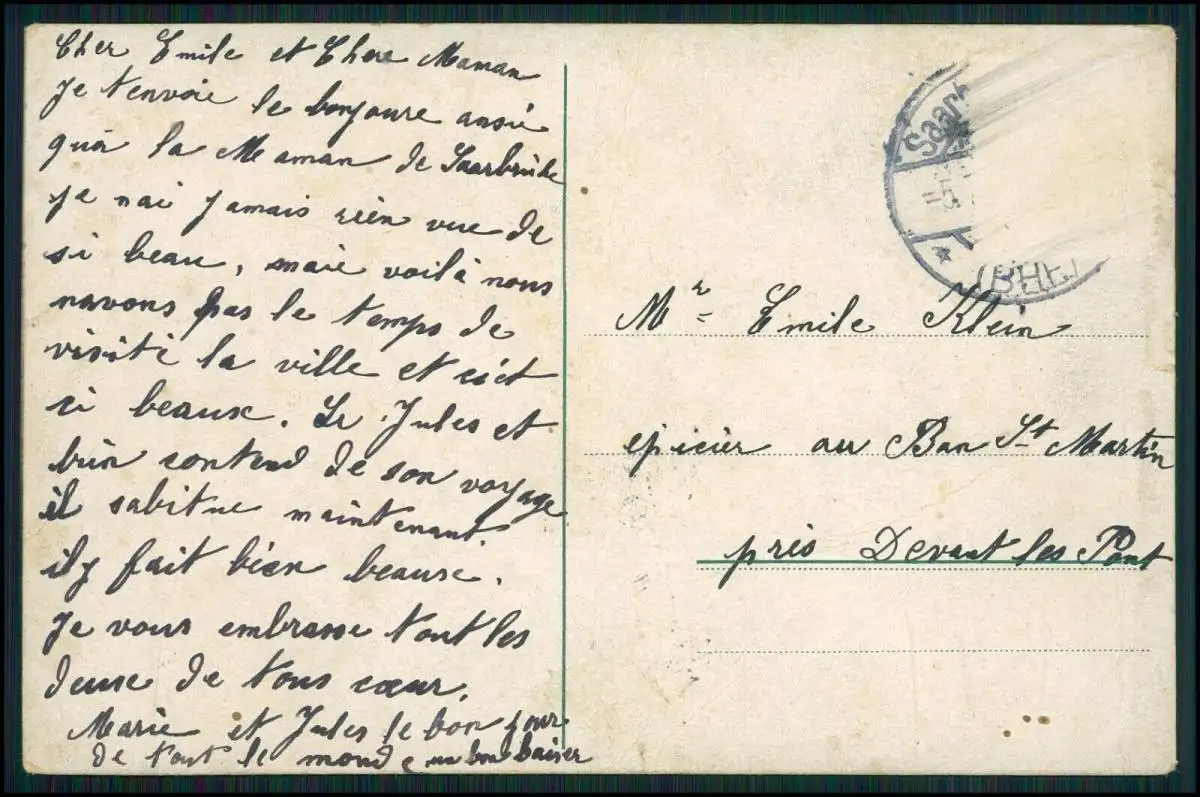 Cher Emile et Chere Maman
Je t'envoie le bonjoure ansie
quà la Maman de Saarbrücke
je nai jamais rien vue de
si beau, maie voilà nous
navons pas le temps de
visité la ville et cièt
si beaux. Le Jules et
bien contend de son voyage
il sabitue maintenant.
il y fait bien beause.
Je vous embrasse tout les
deuse de tous cœur.
Marie et Jules le bon jour
de tout le monde un bon baiser
Saarb
5
(BHF.)
Mr Emile Klein
epicier au Ban St Martin
près Devant les Pont